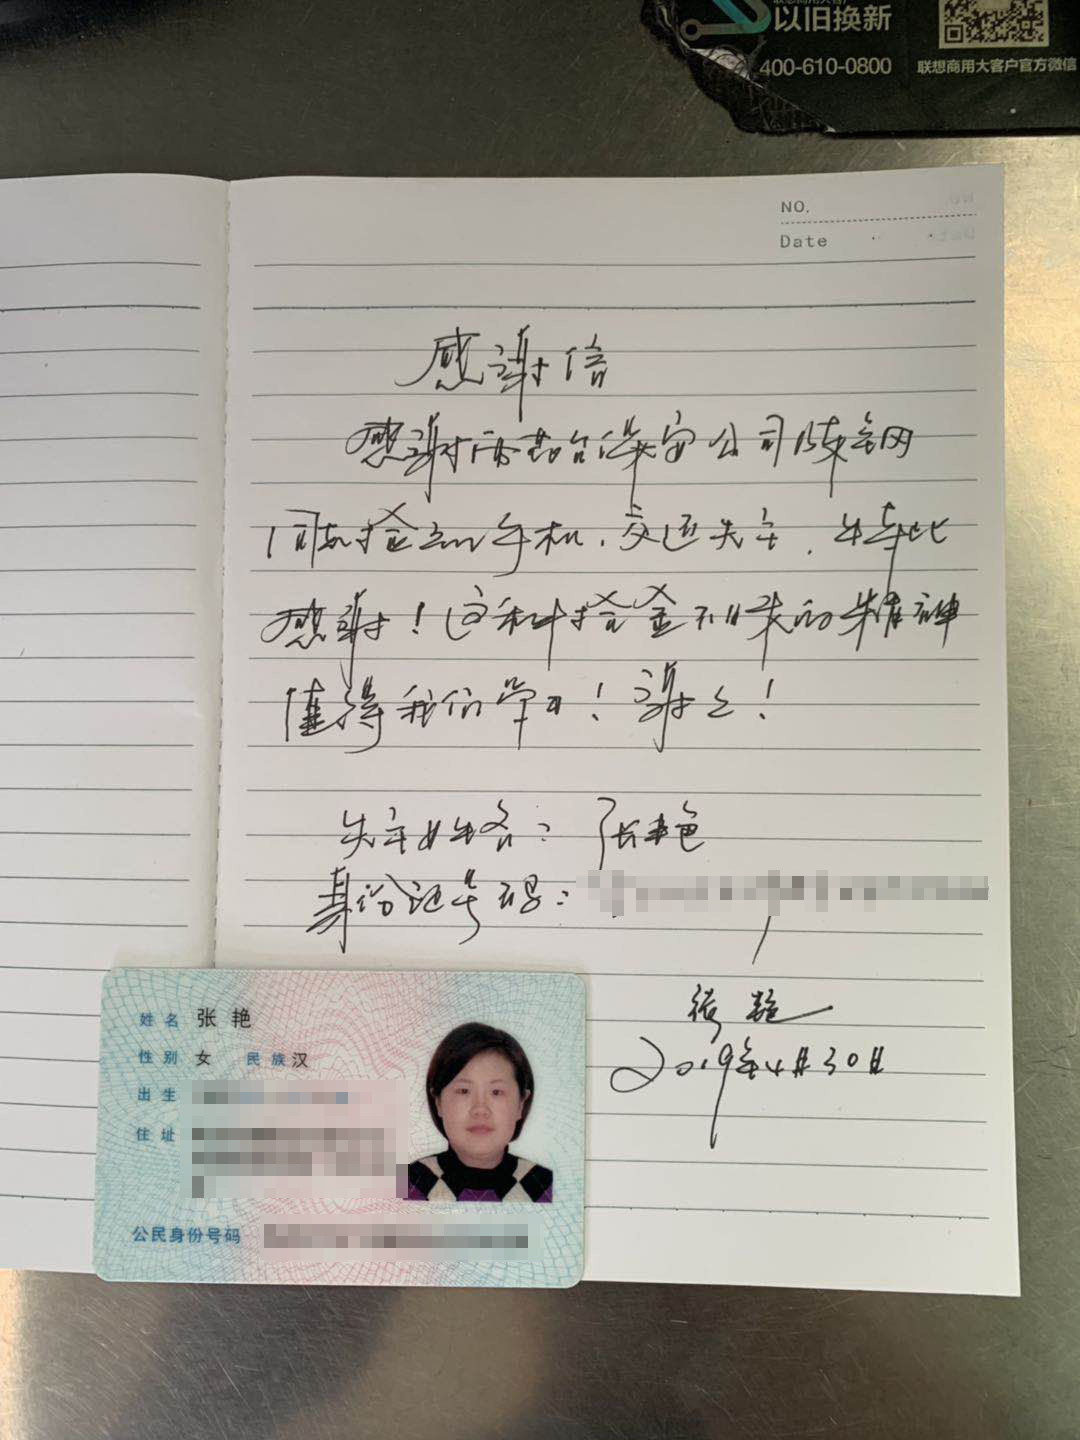 以旧换新
400-610-0800
联想商用大客户官方微信
NO.
Date
感谢信
感谢 保安公司陈
同志拾到手机,交还失主,特此
感谢!这种拾金不昧的精神
值得我们学习!谢谢!
失主姓名:张艳
身份证号码:
张艳
2019年4月30日
姓名 张艳
性别 女 民族 汉
出生
住址
公民身份号码